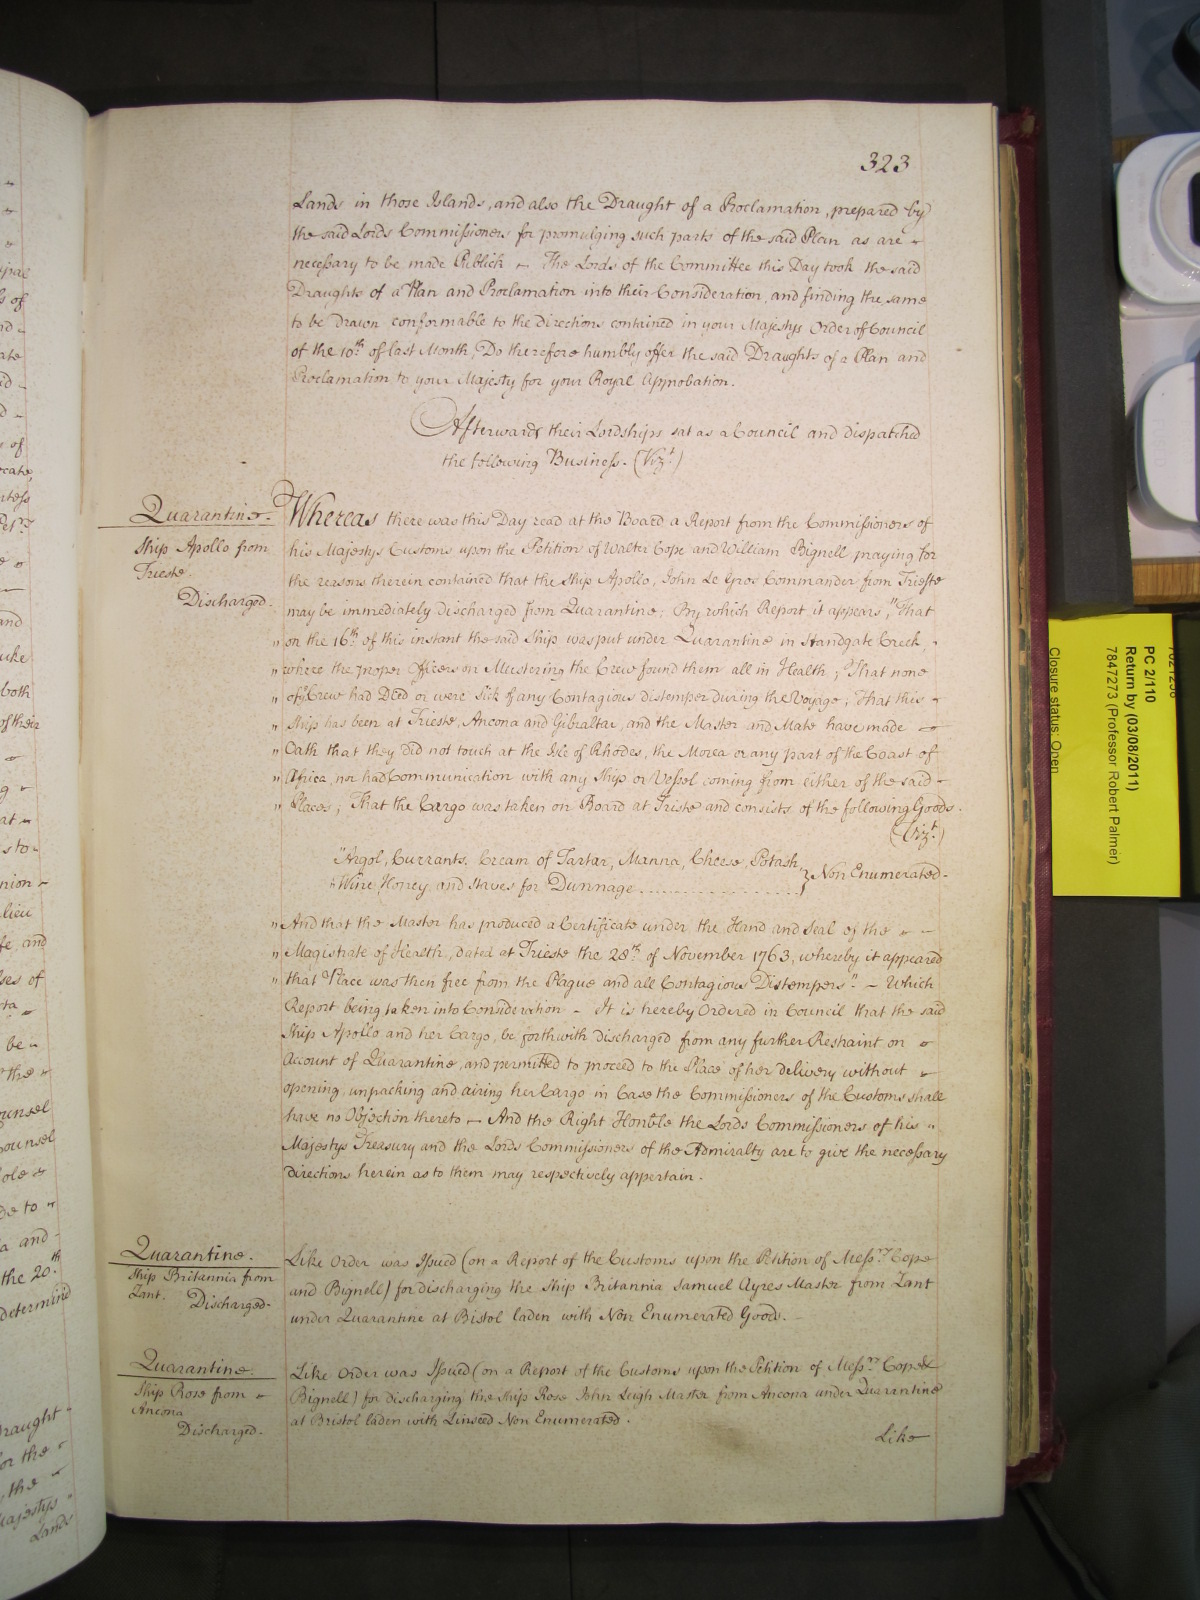 323
Lands in those Islands, and also the Draught of a Proclamation, prepared by
the said Lords Commissioners for promulging such parts of the said Plan as are
necessary to be made Publick - The Lords of the Committee this Day took the said
Draughts of a Plan and Proclamation into their Consideration, and finding the same
to be drawn conformable to the directions contained in your Majestys Order of Council
of the 10th of last Month, Do therefore humbly offer the said Draughts of a Plan and
Proclamation to your Majesty for your Royal Approbation.
Afterwards their Lordships sat as a Council and dispatched
the following Business. (Vizt)
Quarantine.
Ship Apollo from
Trieste.
Discharged.
Whereas there was this Day read at the Board a Report from the Commissioners of
his Majestys Customs upon the Petition of Walter Cope and William Bignell praying for
the reasons therein contained that the Ship Apollo, John Le Gros Commander from Trieste
may be immediately discharged from Quarantine; By which Report it appears, "That
" on the 16th of this instant the said Ship was put under Quarantine in Standgate Creek,
" where the proper Officers on Mustering the Crew found them all in Health; That none
" of ye Crew had Died or were Sick of any Contagious distemper during the Voyage; That this
" Ship has been at Trieste, Ancona and Gibraltar, and the Master and Mate have made
" Oath that they did not touch at the Isle of Rhodes, the Morea or any part of the Coast of
" Africa, nor had Communication with any Ship or Vessel coming from either of the said
" Places; That the Cargo was taken on Board at Trieste and consists of the following Goods.
(Vizt)
"Argol, Currants, Cream of Tartar, Manna, Cheese, Potash,
" Wine, Honey, and Staves for Dunnage .................. } Non Enumerated.
" And that the Master has produced a Certificate under the Hand and Seal of the
" Magistrate of Health, dated at Trieste the 28th of November 1763, whereby it appeared
" that Place was then free from the Plague and all Contagious Distempers" - Which
Report being taken into Consideration - It is hereby Ordered in Council that the said
Ship Apollo and her Cargo, be forthwith discharged from any further Restraint on
Account of Quarantine, and permitted to proceed to the Place of her delivery without
opening, unpacking and airing her Cargo in Case the Commissioners of the Customs shall
have no Objection thereto - And the Right Honble the Lords Commissioners of his
Majestys Treasury and the Lords Commissioners of the Admiralty are to give the necessary
Directions herein as to them may respectively appertain.
Quarantine.
Ship Britannia from
Zant. Discharged.
Like Order was Issued (on a Report of the Customs upon the Petition of Messrs Cope
and Bignell) for discharging the Ship Britannia Samuel Ayres Master from Zant
under Quarantine at Bistol laden with Non Enumerated Goods.
Quarantine.
Ship Rose from
Ancona
Discharged.
Like Order was Issued (on a Report of the Customs upon the Petition of Messrs Cope &
Bignell) for discharging the Ship Rose John Leigh Master from Ancona under Quarantine
at Bristol laden with Linseed Non Enumerated.
Like
PC 2/110
Return by (03/08/2011)
7847273 (Professor Robert Palmer)
Closure status: Open